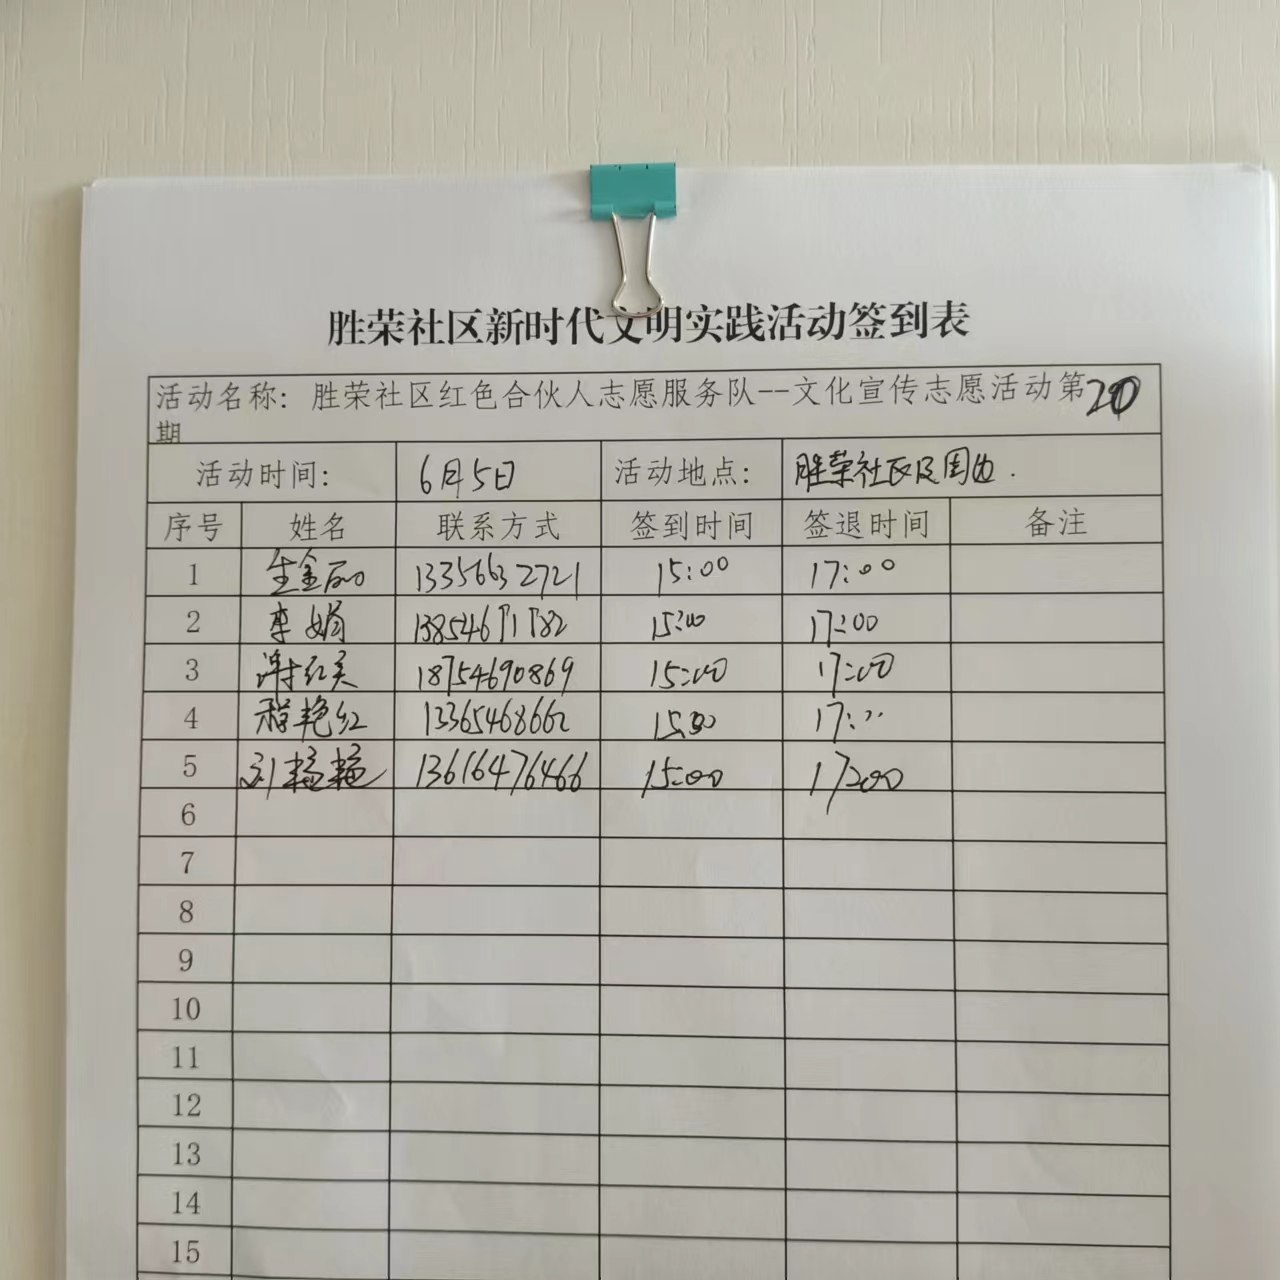 胜荣社区新时代文明实践活动签到表
活动名称：胜荣社区红色合伙人志愿服务队--文化宣传志愿活动第20
期
活动时间： 6月5日 活动地点： 胜荣社区及周边.
序号 姓名 联系方式 签到时间 签退时间 备注
1 生金丽 13356632721 15:00 17:00
2 李娟 15:00 17:00
3 谢红美 18754690869 15:00 17:00
4 程艳红 13365468662 15:00 17:00
5 刘艳艳 13616476466 15:00 17:00
6
7
8
9
10
11
12
13
14
15